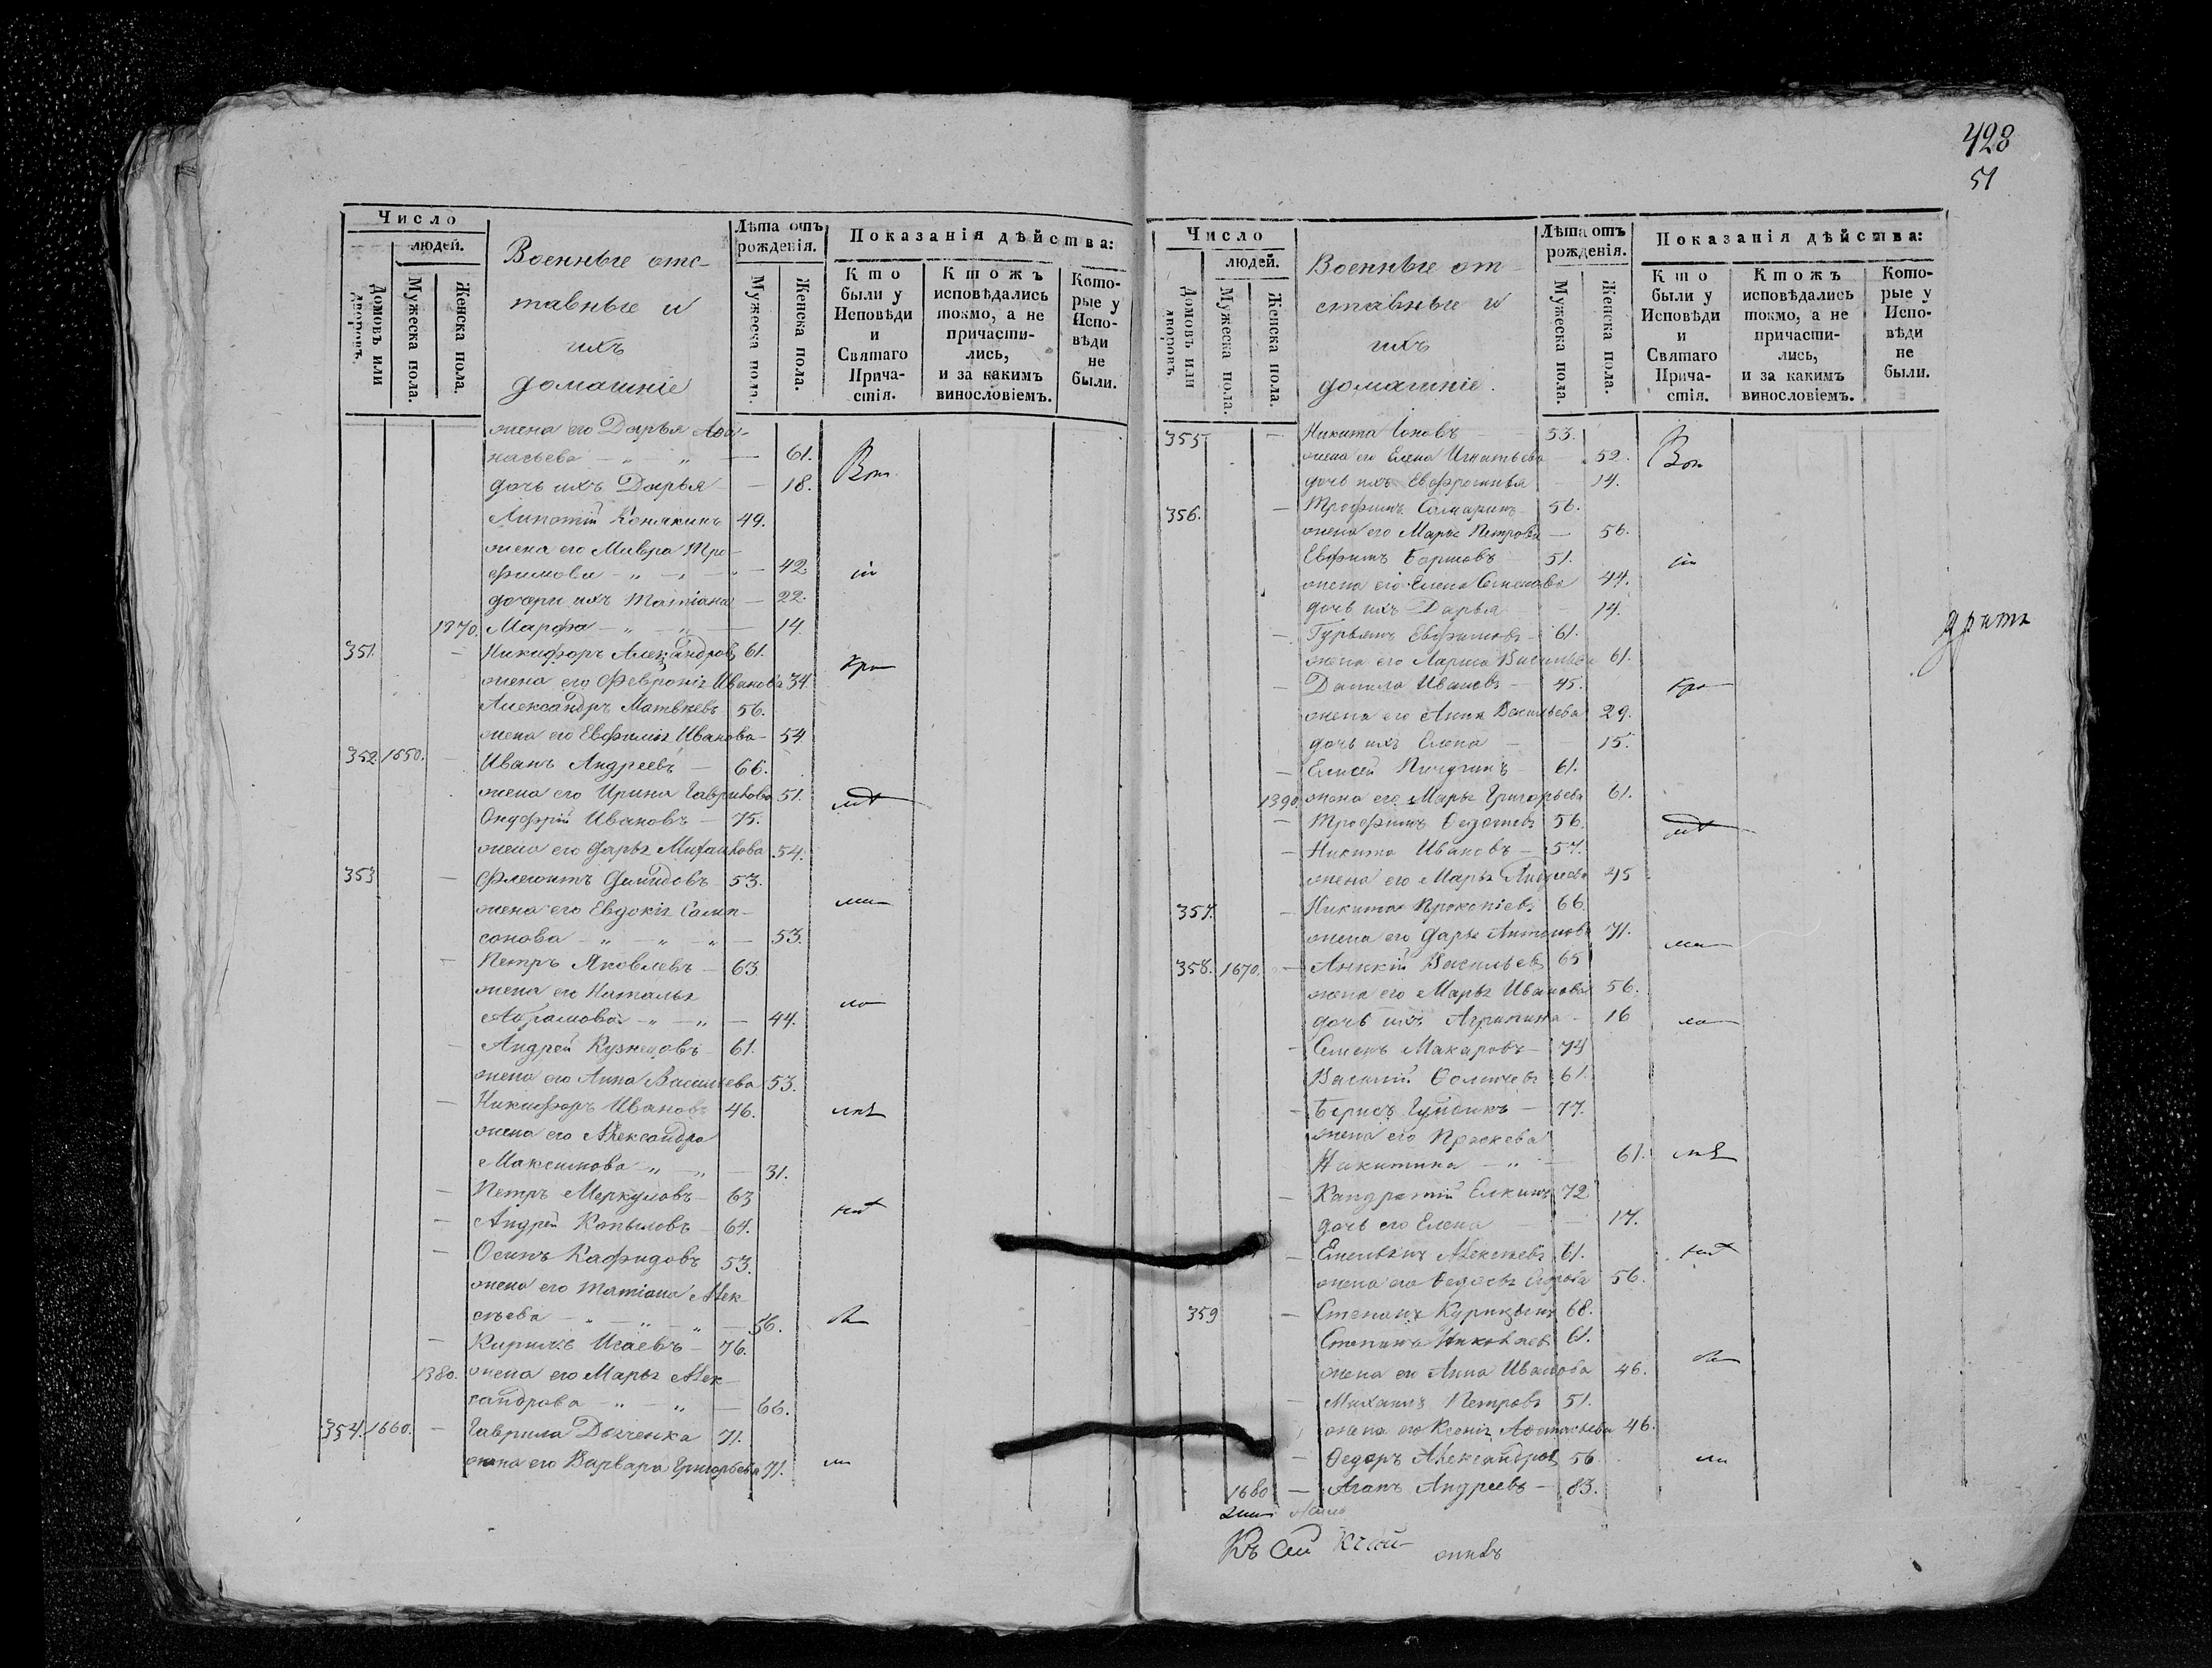 428
51
Число
людей.
Домовъ или дворовъ.
Мужеска пола.
Женска пола.
Военные отс-
тавные и
ихъ
домашніе
Лѣта отъ рожденія.
Мужеска пола.
Женска пола.
Показанія дѣйства:
Кто были у Исповѣди и Святаго Прича-стія.
Ктожъ исповѣдались токмо, а не причасти-лись, и за какимъ винословіемъ.
Кото-рые у Испо-вѣди не были.
жена его Дарья Афа-
насьева 61.
дочь ихъ Дарья 18.
Конякинъ 49.
жена его Мавра Тро-
фимова 42.
дочери ихъ Татіана 22.
1370. Марфа 14.
351. Никифоръ Александровъ 61.
жена его Февронія Иванова 34.
Александръ Матвѣевъ 56.
жена его Евфимія Иванова 54
352 1650. Иванъ Андреевъ 66.
жена его Ирина Гаврилова 51.
Онуфрій Ивановъ 75.
жена его Дарья Михайлова 54.
353 53.
жена его Евдокія Самп-
сонова 53.
Петръ Яковлевъ 63
жена его Наталья
Абрамова 44.
Андрей Кузнецовъ 61.
жена его Анна Васильева 53.
Никифоръ Ивановъ 46.
жена его Александра
Максимова 31.
Петръ Меркуловъ 63
Андрей Копыловъ 64.
Осипъ Кафидовъ 53.
жена его Татіана Алек-
сѣева 56.
Кирила Исаевъ 76.
1380. жена его Марья Алек-
сандрова 66.
354. 1660. Гаврила 71.
жена его Варвара Григорьева 71.
Число
людей.
Домовъ или дворовъ.
Мужеска пола.
Женска пола.
Военные от-
ставные и
ихъ
домашніе.
Лѣта отъ рожденія.
Мужеска пола.
Женска пола.
Показанія дѣйства:
Кто были у Исповѣди и Святаго Прича-стія.
Ктожъ исповѣдались токмо, а не причасти-лись, и за какимъ винословіемъ.
Кото-рые у Испо-вѣди не были.
355 Никита Іоновъ 53.
жена его Елена Игнатьева 52.
дочь ихъ Евфросинья 14.
356. Трофимъ 56.
жена его Марья Петрова 56.
Евфимъ 51.
жена его Елена Семенова 44.
дочь ихъ Дарья 14.
Гурьянъ Евфимовъ 61.
жена его Васильева 61.
Данила Ивановъ 45.
жена его Анна Васильева 29.
дочь ихъ Елена 15.
Елисей Пичугинъ 61.
1390. жена его Марья Григорьева 61.
Трофимъ 56.
Никита Ивановъ 57.
жена его Марья 45
357. Никита Прокопіевъ 66.
жена его Дарья Антонова 71.
358. 1670. Васильевъ 65
жена его Марья Иванова 56.
дочь ихъ Агрипина 16
Семенъ Макаровъ 74
Василій 61.
Борисъ 77.
жена его Прасковья
Никитина 61.
Кандратій Елкинъ 72
дочь его Елена 17.
Емельянъ Алексѣевъ 61.
жена его 56.
359 Степанъ Курицынъ 68.
Степанъ Николаевъ 61.
жена его Анна Иванова 46.
Михаилъ Петровъ 51.
жена его Ксенія 46.
Федоръ Александровъ 56
1680 Агапъ Андреевъ 83.
Къ сей